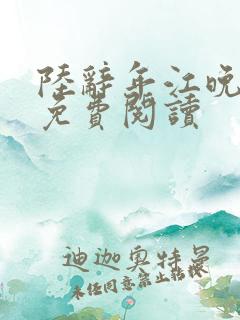 陸辭年江晚
免費閱讀
迪迦奧特曼
未任同意禁止轉載